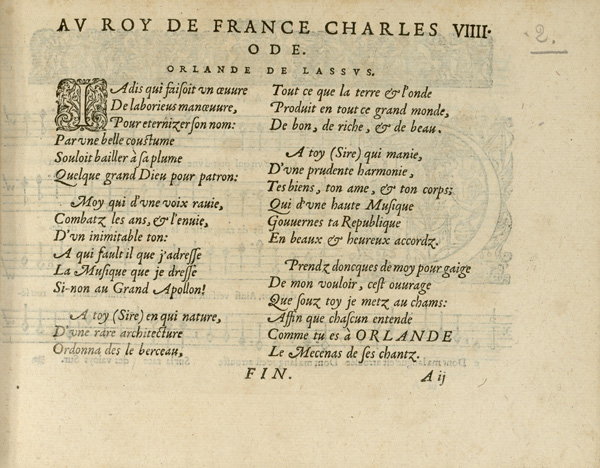 AV ROY DE FRANCE CHARLES VIIII.
2.
ODE.
ORLANDE DE LASSVS.
IAdis qui faisoit vn œuure
De laborieus manœuure,
Pour eternizer son nom:
Par vne belle coustume
Souloit bailler à sa plume
Quelque grand Dieu pour patron:
Moy qui d'vne voix rauie,
Combatz les ans, & l'enuie,
D'vn inimitable ton:
A qui fault il que j'adresse
La Musique que je dresse
Si-non au Grand Apollon!
A toy (Sire) en qui nature,
D'vne rare architecture
Ordonna des le berceau,
Tout ce que la terre & l'onde
Produit en tout ce grand monde,
De bon, de riche, & de beau.
A toy (Sire) qui manie,
D'vne prudente harmonie,
Tes biens, ton ame, & ton corps:
Qui d'vne haute Musique
Gouuernes ta Republique
En beaux & heureux accordz.
Prendz doncques de moy pour gaige
De mon vouloir, cest ouurage
Que souz toy je metz au chams:
Affin que chascun entende
Comme tu es à ORLANDE
Le Mecenas de ses chantz.
FIN.
A ij